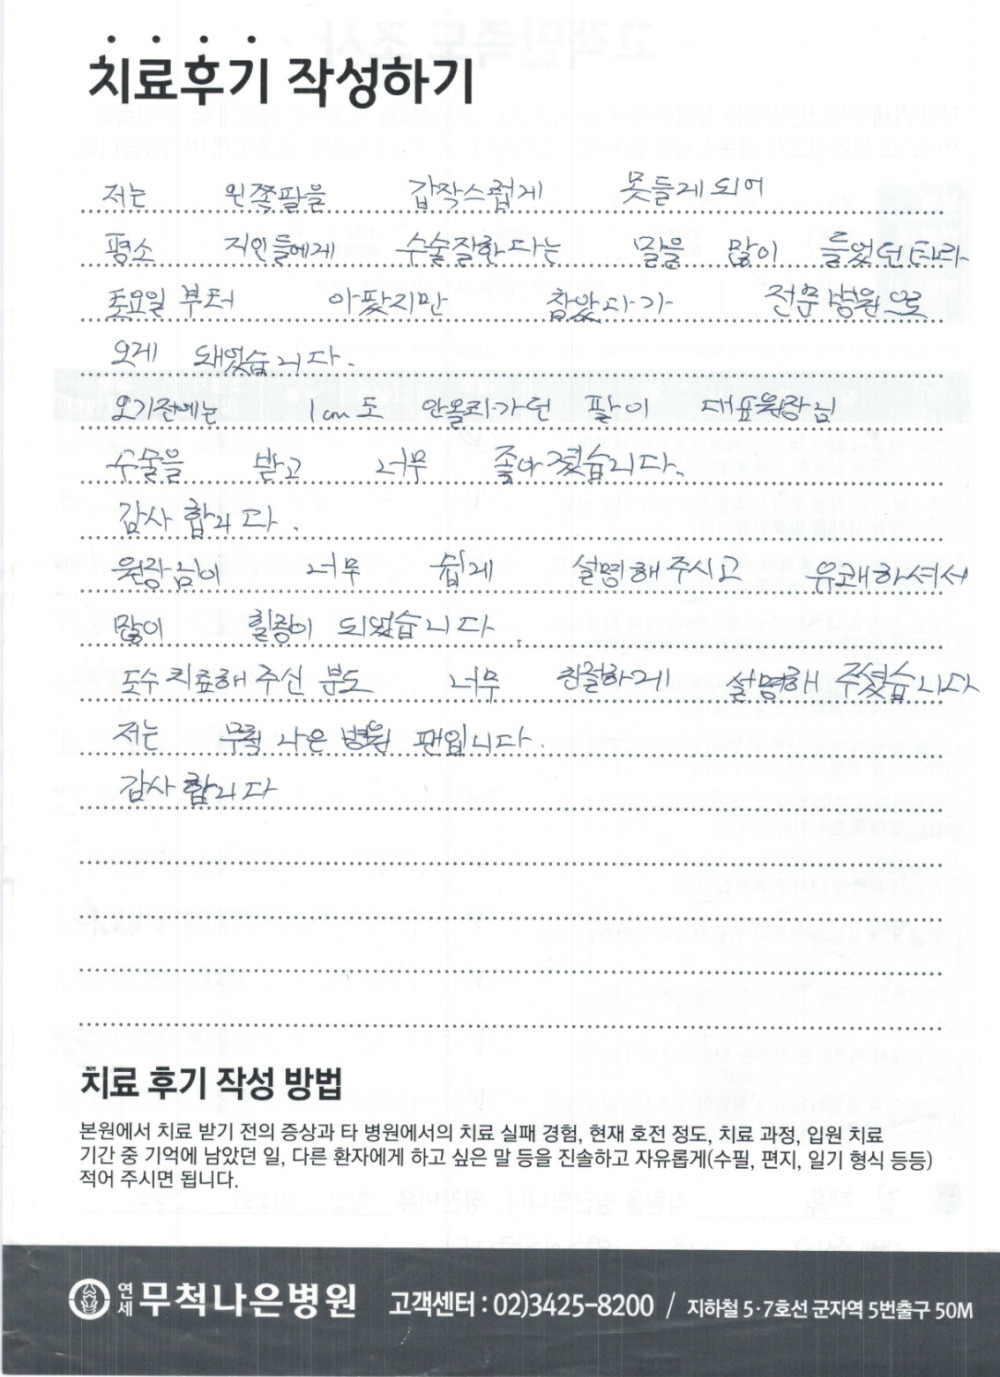 치료후기 작성하기
저는 왼쪽팔을 갑작스럽게 못들게 되어
평소 지인들에게 수술잘한다는 말을 많이 들었던터라
토요일 부터 아팠지만 참았다가 전문병원으로
오게 돼었습니다.
오기전에는 1cm도 안올라가던 팔이 대표원장님
수술을 받고 너무 좋아졌습니다.
감사합니다.
원장님이 너무 쉽게 설명해주시고 유쾌하셔서
많이 힐링이 되었습니다.
도수치료해주신 분도 너무 친절하게 설명해 주셨습니다
저는 무척 나은 병원 팬입니다.
감사합니다
치료 후기 작성 방법
본원에서 치료 받기 전의 증상과 타 병원에서의 치료 실패 경험, 현재 호전 정도, 치료 과정, 입원 치료
기간 중 기억에 남았던 일, 다른 환자에게 하고 싶은 말 등을 진솔하고 자유롭게(수필, 편지, 일기 형식 등등)
적어 주시면 됩니다.
연세 무척나은병원 고객센터 : 02)3425-8200 / 지하철 5·7호선 군자역 5번출구 50M